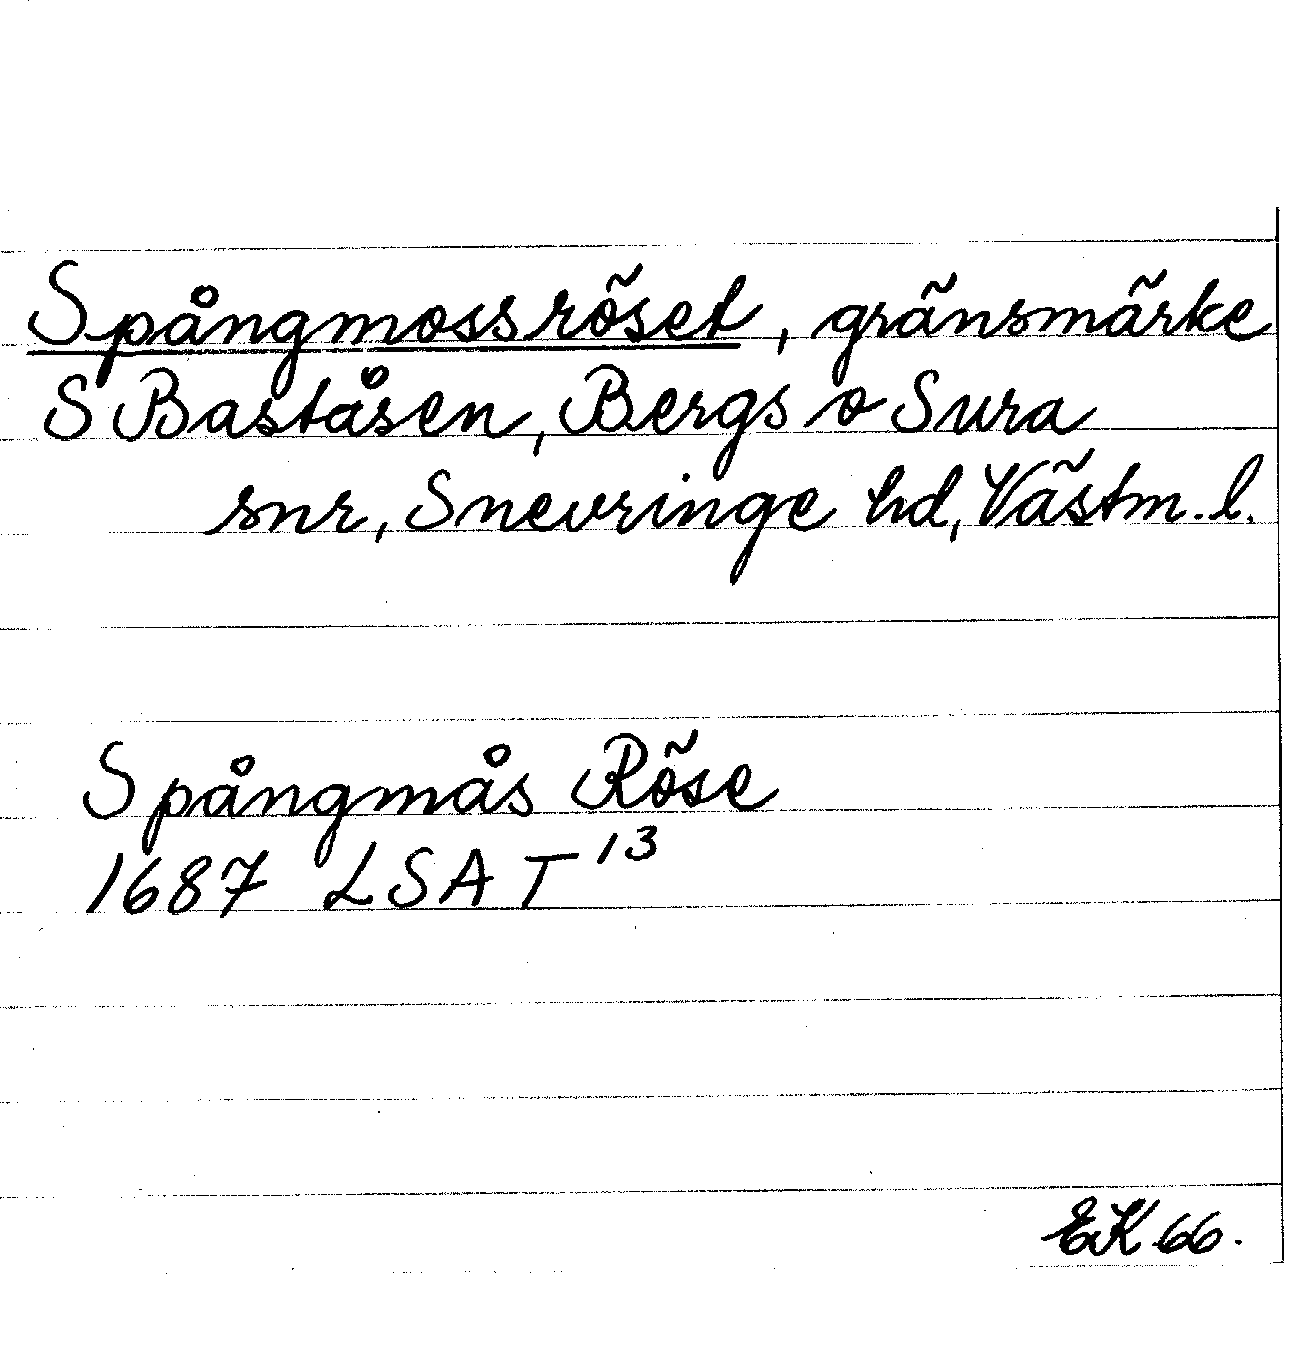 Spångmossröset, gränsmärke
S Baståsen, Bergs o Sura
snr, Snevringe hd, Västm. l.
Spångmås Röse
1687 LSA T 13
EK 66.